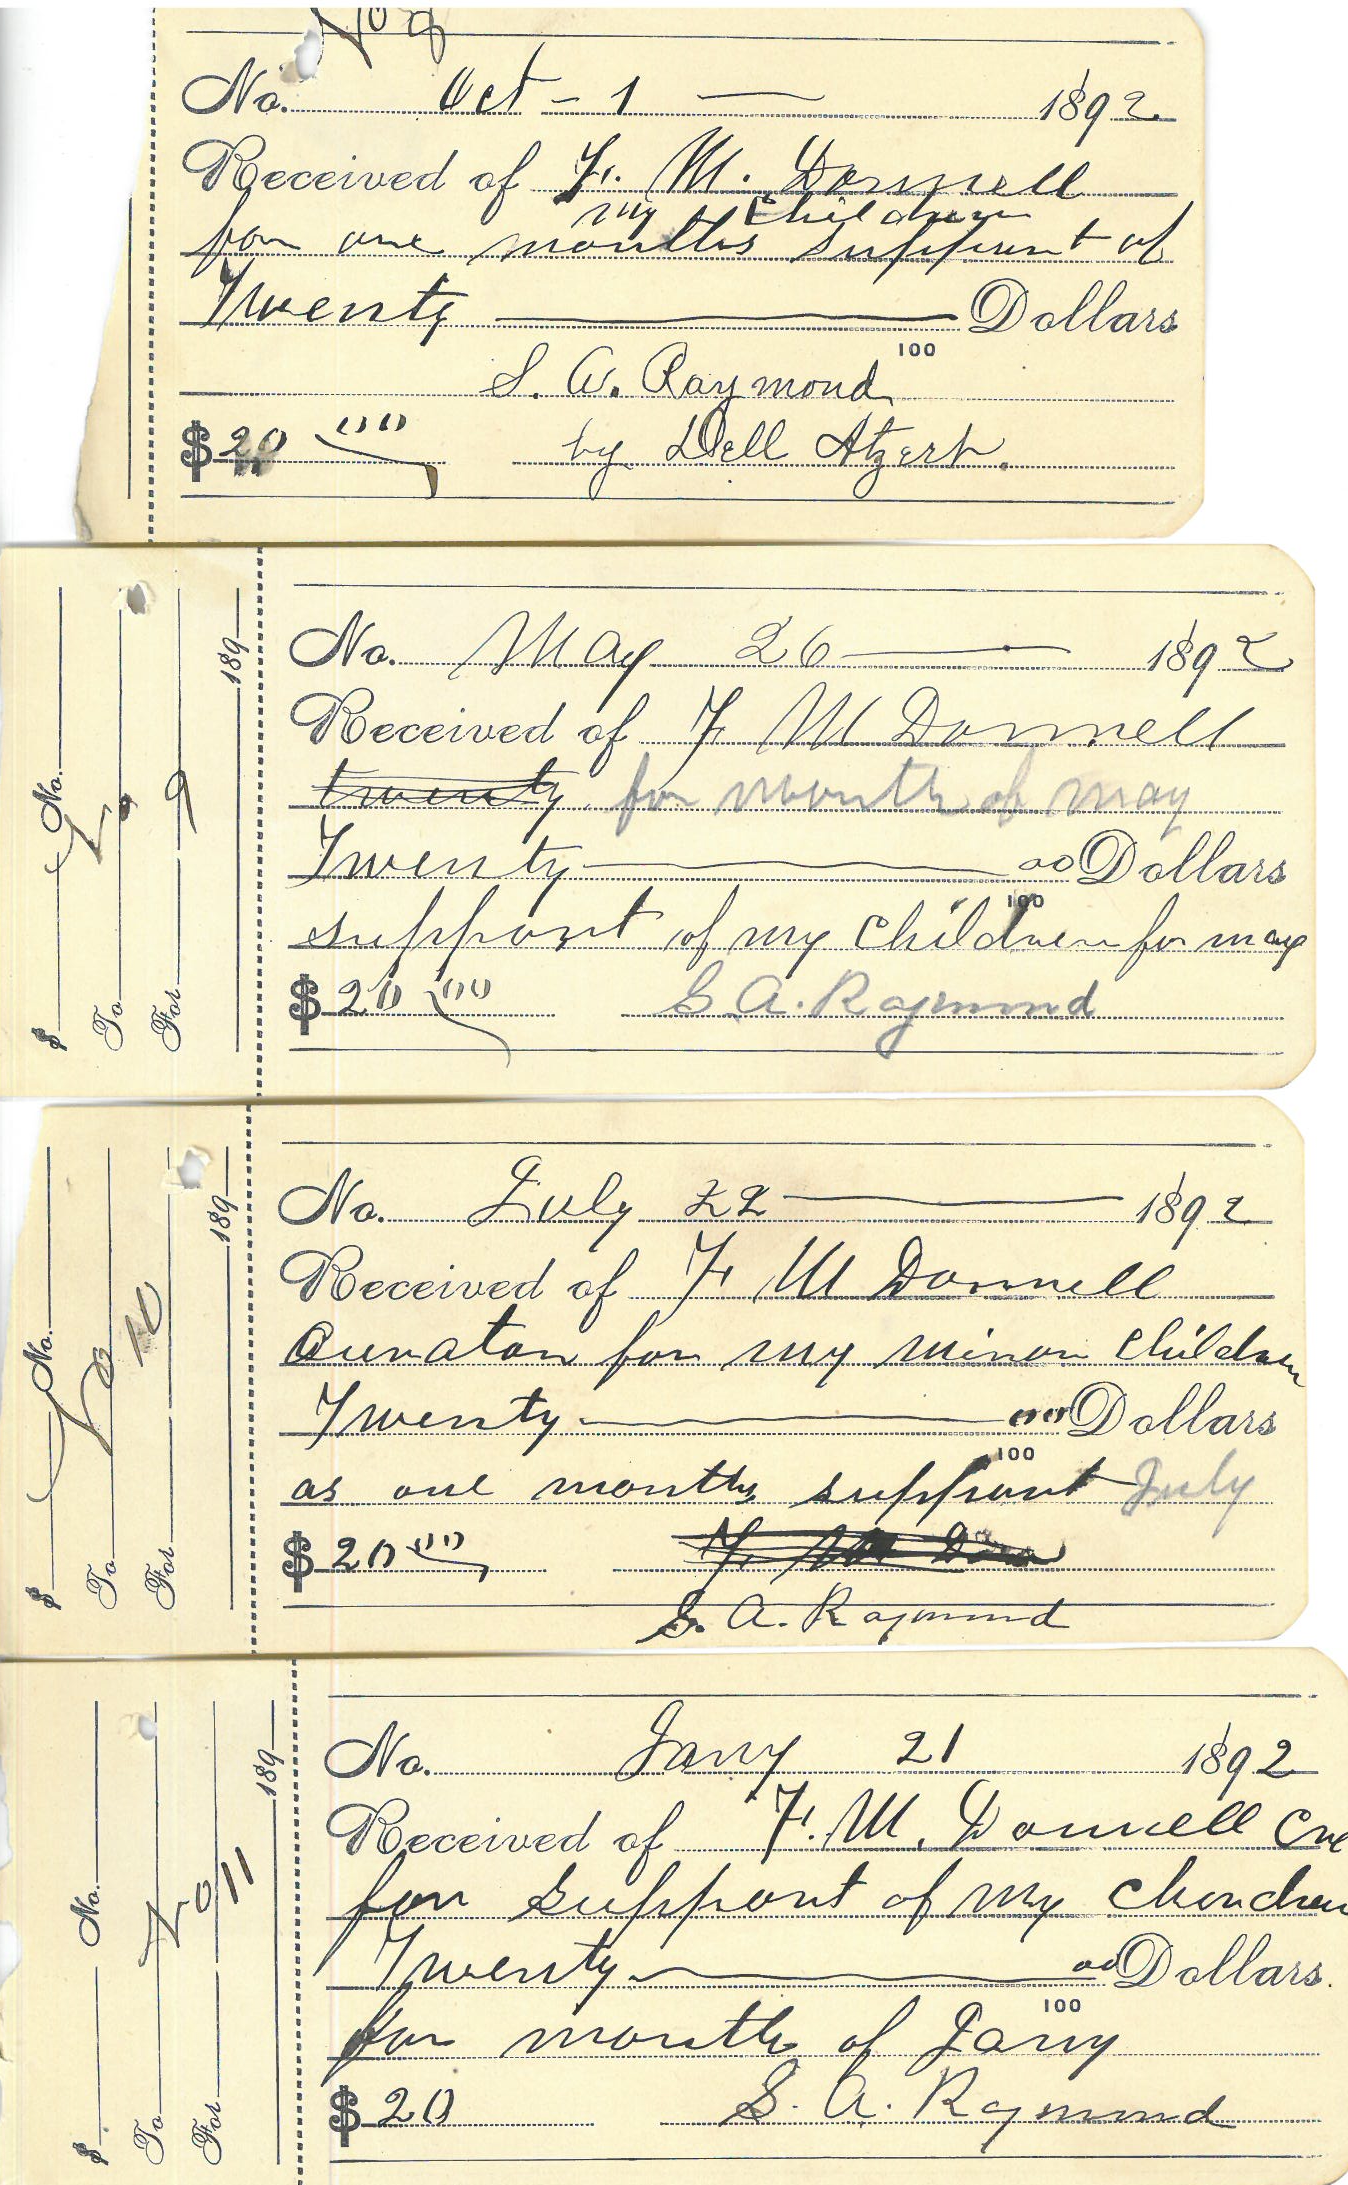 No 8
No. Oct - 1 — 1892
Received of F. M. Donnell
my children
for one months support of
Twenty — Dollars
100
S. A. Raymond
$20 00 by Dell Atzert.
No. May 26 — 1892
Received of F M Donnell
twenty for month of may
Twenty — 00 Dollars
100
support of my children for may
$20 00 S. A. Raymond
$ No.
To
For
189
No 9
No. July 22 — 1892
Received of F M Donnell
Curator for my minor children
Twenty — 00 Dollars
100
as one months support July
$20 00 F. M Don
S. A. Raymond
$ No.
To
For
189
No 10
No. Jany 21 1892
Received of F. M. Donnell
for support of my
Twenty — 00 Dollars.
100
for month of Jany
$20 S. A. Raymond
$ No.
To
For
189
No 11